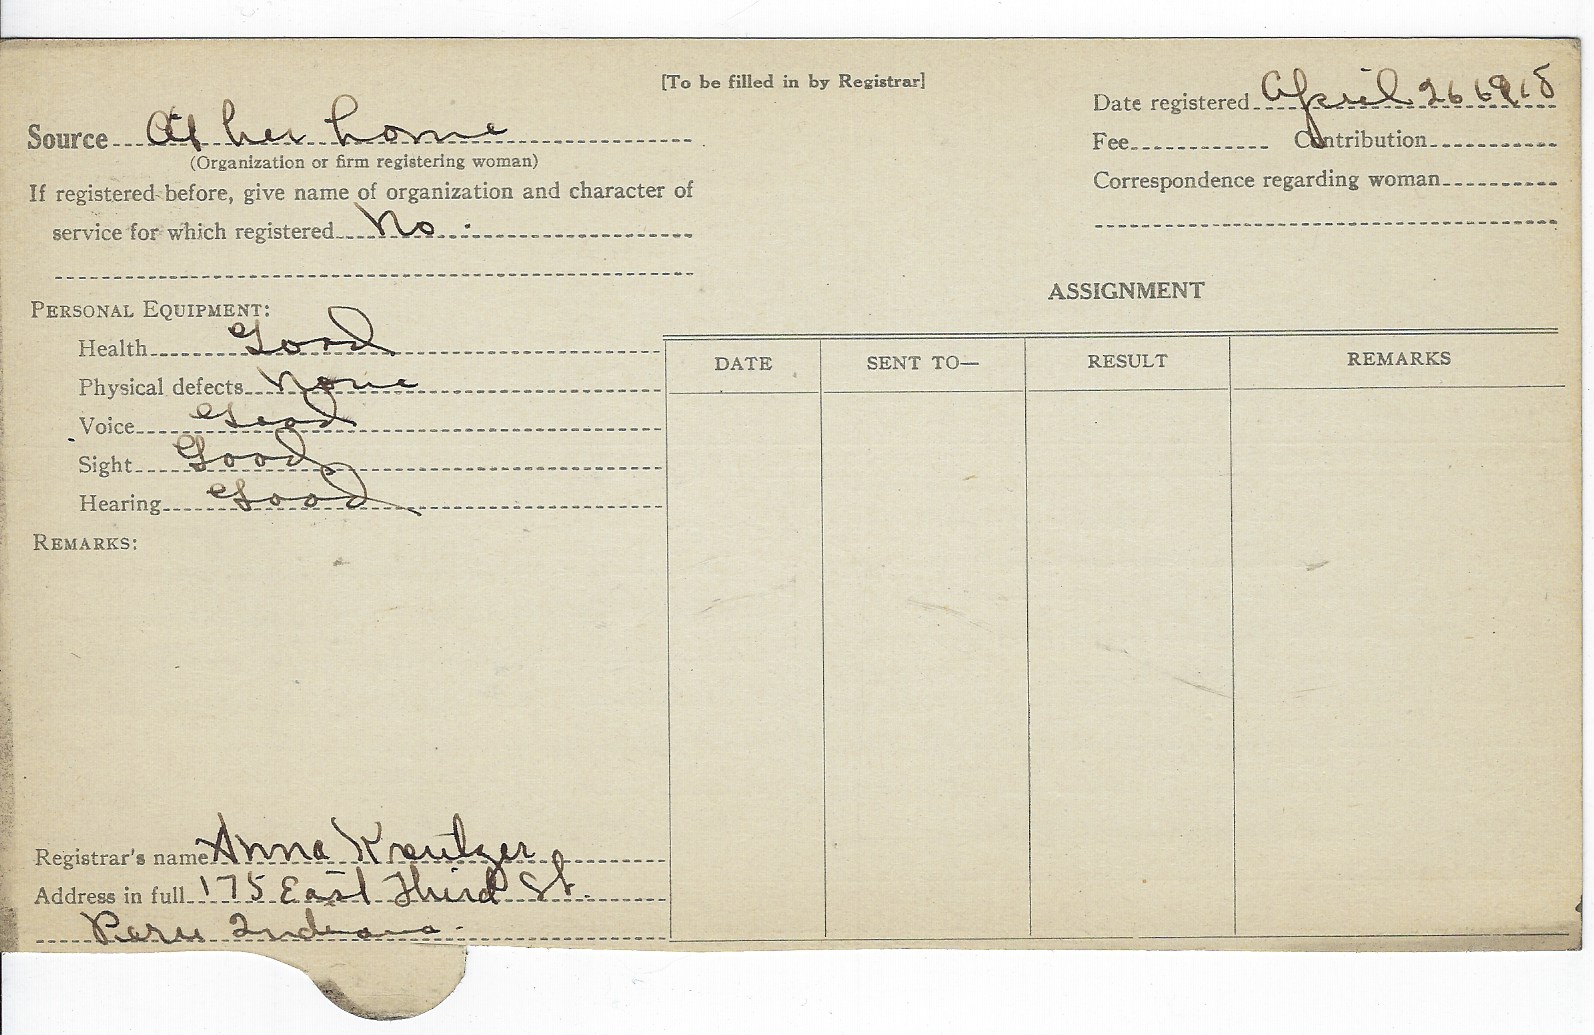 [To be filled in by Registrar]
Date registered April 26 1918
Source At her home
(Organization or firm registering woman)
Fee Contribution
If registered before, give name of organization and character of
service for which registered No.
Correspondence regarding woman
ASSIGNMENT
PERSONAL EQUIPMENT:
Health Good
Physical defects None
Voice Good
Sight Good
Hearing Good
DATE SENT TO— RESULT REMARKS
REMARKS:
Registrar's name Anna Kreutzer
Address in full 175 East Third St.
Peru Indiana.